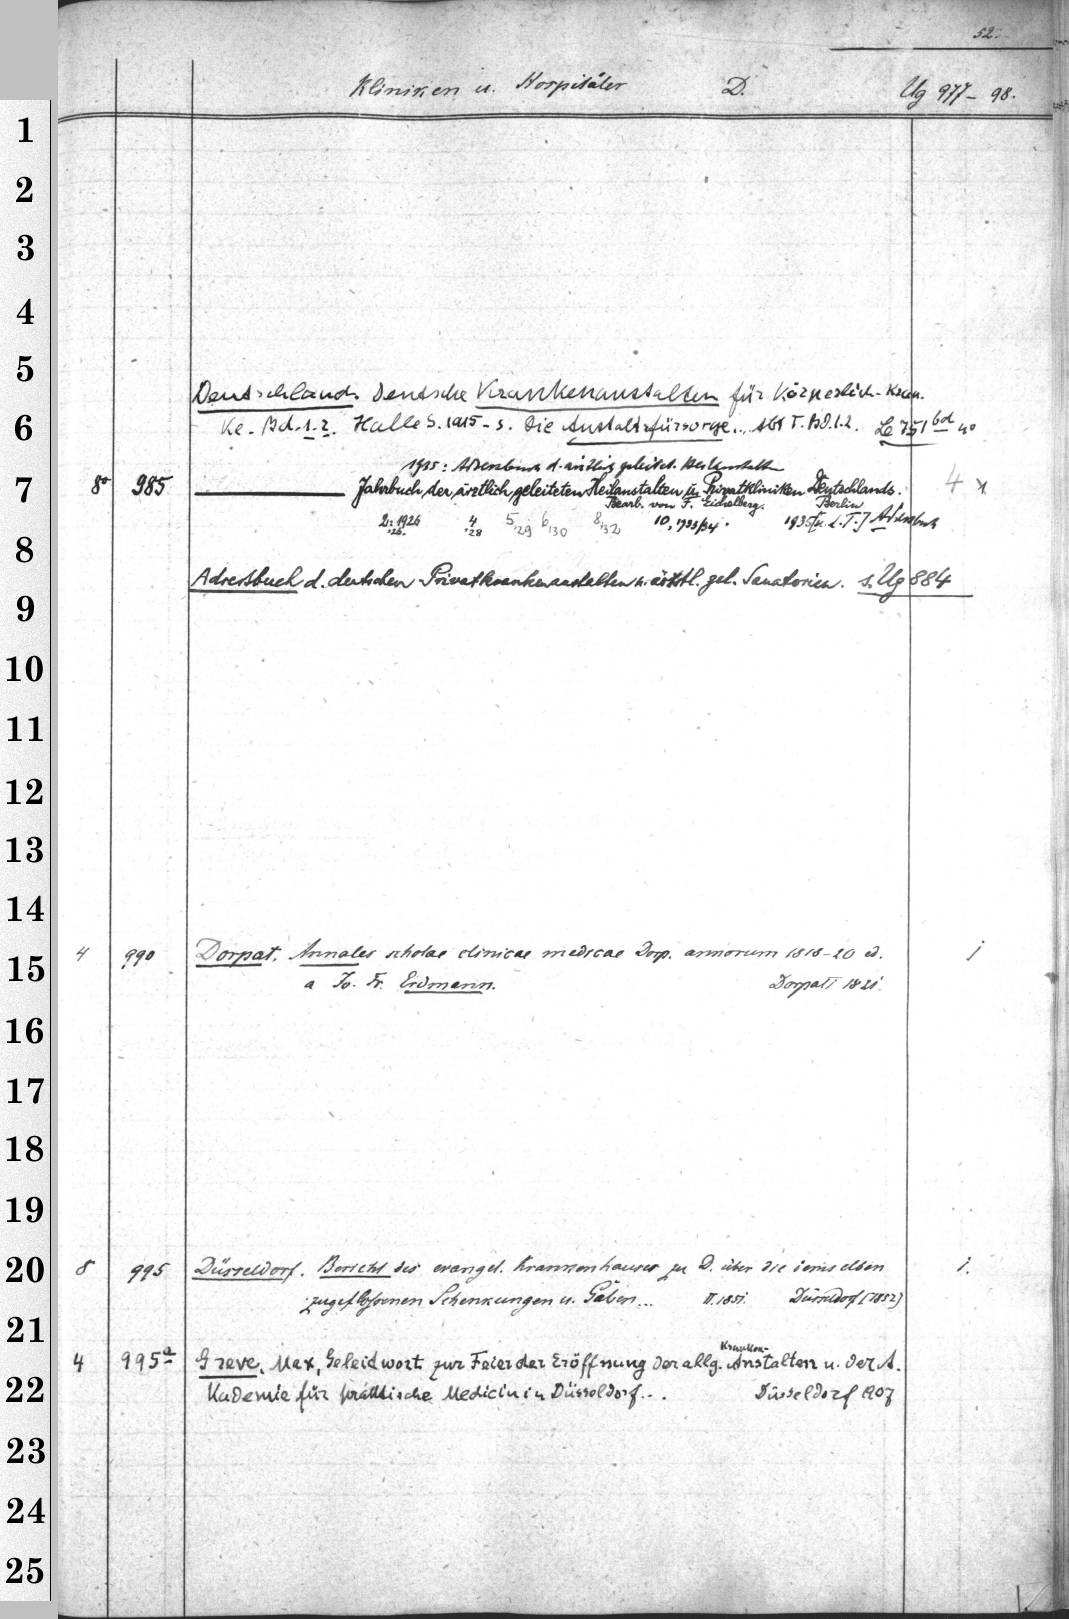 52.
Kliniken u. Hospitäler D. Ug 977-98.
1
2
3
4
5
Deutschland. Deutsche Krankenanstalten für Körperlich-Kran-
6
ke. Bd. 1-2. Halle S. 1915- s. Die Anstaltsfürsorge... Abt I. Bd. 1.2. Le 751 bd 4o
1935: Adressbuch d. ärztlich geleitet. Heilanstalten
7
8o 985 Jahrbuch der ärztlich geleiteten Heilanstalten u. Privatkliniken Deutschlands. 4
Bearb. von F. Eichelberg. Berlin
2: 1926 4 28 5, 29 6, 30 8, 32 10, 1933/34. 1935 [u. d. T.] Adressbuch
8
Adressbuch d. deutschen Privatkrankenanstalten u. ärztl. gel. Sanatorien. s. Ug 884
9
10
11
12
13
14
4 990 Dorpat. Annales scholae clinicae medicae Dorp. annorum 1818-20 ed. j
15
a Jo. Fr. Erdmann. Dorpati 1821.
16
17
18
19
8 995 Düsseldorf. Bericht des evangel. Krankenhauses zu D. über die demselben j.
20
zugeflossenen Schenkungen u. Gaben... II. 1851. Düsseldorf (1852)
21
Kranken-
4 995a Greve, Max, Geleidwort zur Feier der Eröffnung der allg. Anstalten u. der A.
22
Kademie für praktische Medicin in Düsseldorf... Düsseldorf 1907
23
24
25